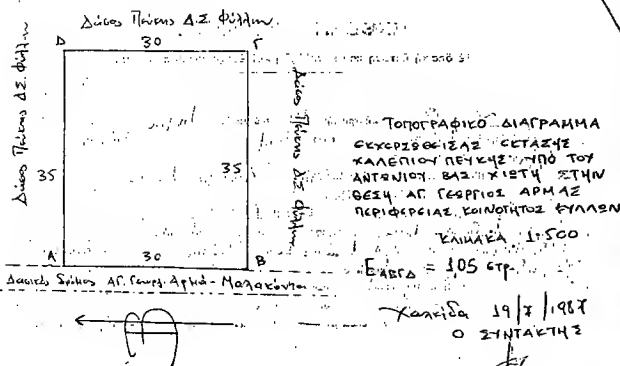 Δάσος Πεύκης Δ.Σ. Φύλλων
Δ 30 Γ
Δάσος Πεύκης Δ.Σ. Φύλλων
Δάσος Πεύκης Δ.Σ. Φύλλων
35 35
Α 30 Β
Δασικός δρόμος ΑΓ. Γεωργ. Αρμά - Μαλακόντα
ΤΟΠΟΓΡΑΦΙΚΟ ΔΙΑΓΡΑΜΜΑ
ΕΚΧΕΡΣΩΘΕΙΣΑΣ ΕΚΤΑΣΗΣ
ΧΑΛΕΠΙΟΥ ΠΕΥΚΗΣ ΥΠΟ ΤΟΥ
ΑΝΤΩΝΙΟΥ ΒΑΣ. ΧΙΩΤΗ ΣΤΗΝ
ΘΕΣΗ ΑΓ. ΓΕΩΡΓΙΟΣ ΑΡΜΑΣ
ΠΕΡΙΦΕΡΕΙΑΣ ΚΟΙΝΟΤΗΤΟΣ ΦΥΛΛΩΝ
ΚΛΙΜΑΚΑ 1:500
Ε ΑΒΓΔ = 1,05 στρ.
Χαλκίδα 19/7/1987
Ο ΣΥΝΤΑΚΤΗΣ